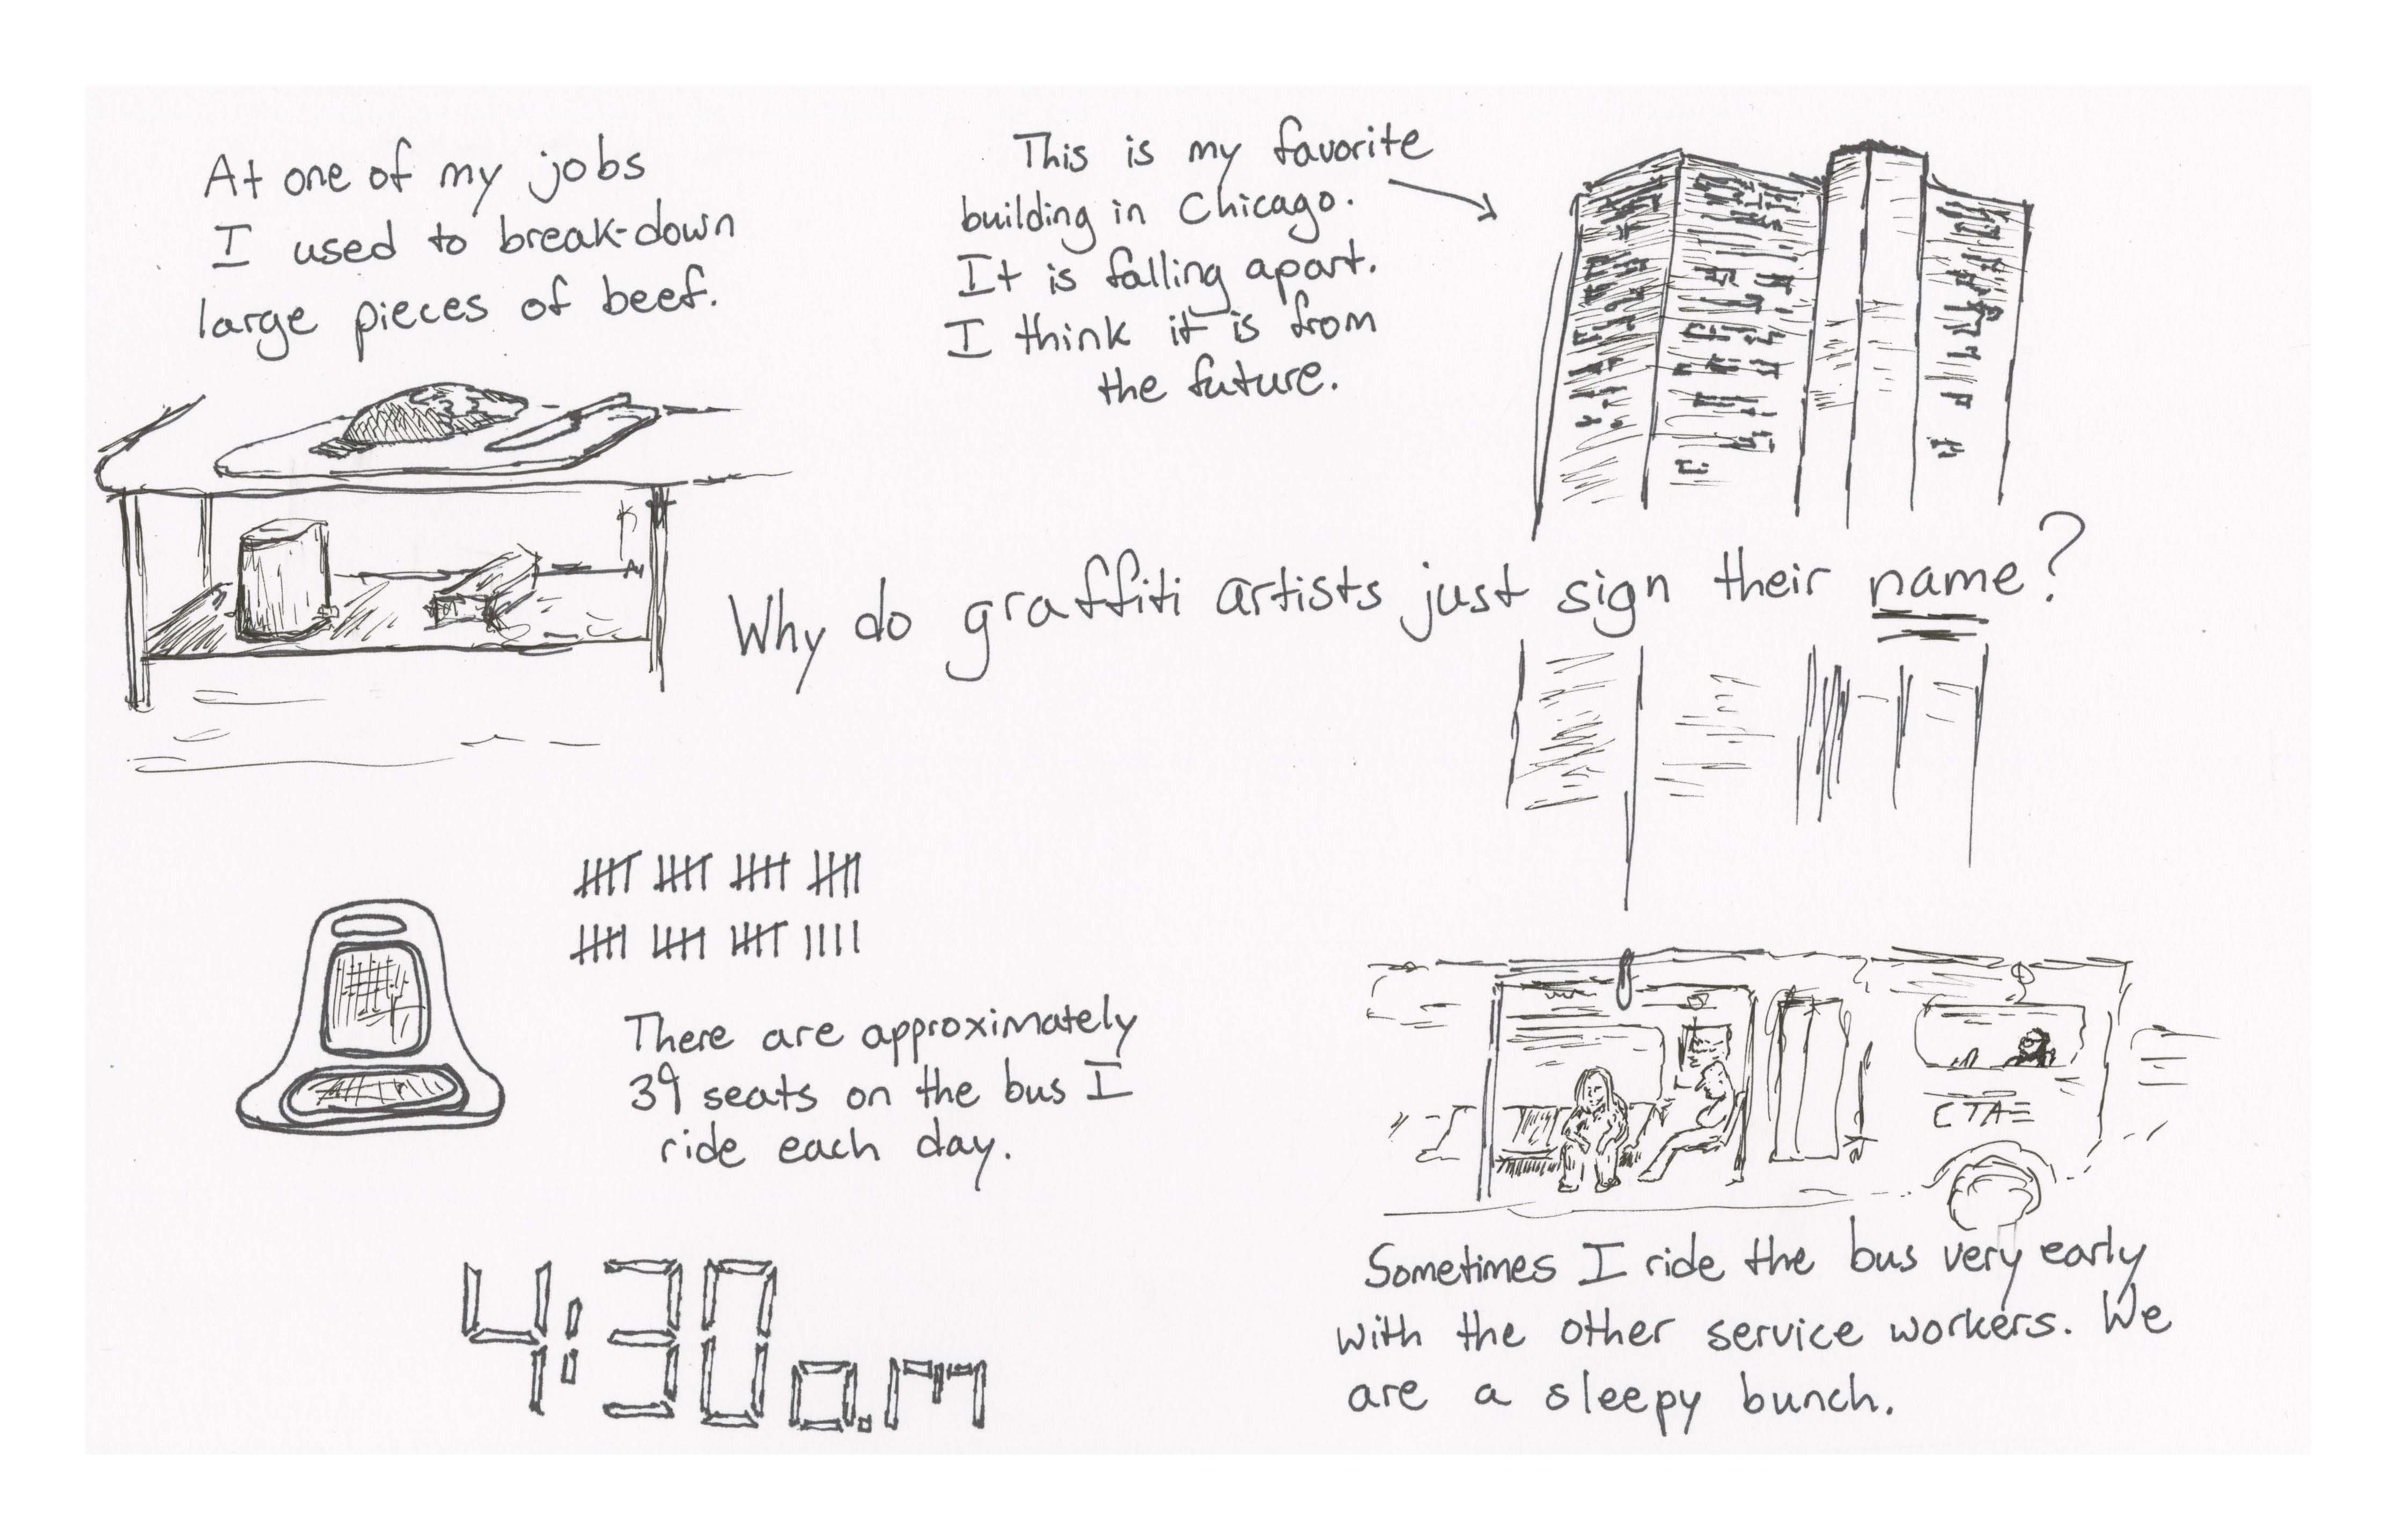 At one of my jobs
I used to break-down
large pieces of beef.
This is my favorite
building in Chicago.
It is falling apart.
I think it is from
the future.
Why do graffiti artists just sign their name?
There are approximately
39 seats on the bus I
ride each day.
4:30 a.m
CTA
Sometimes I ride the bus very early
with the other service workers. We
are a sleepy bunch.